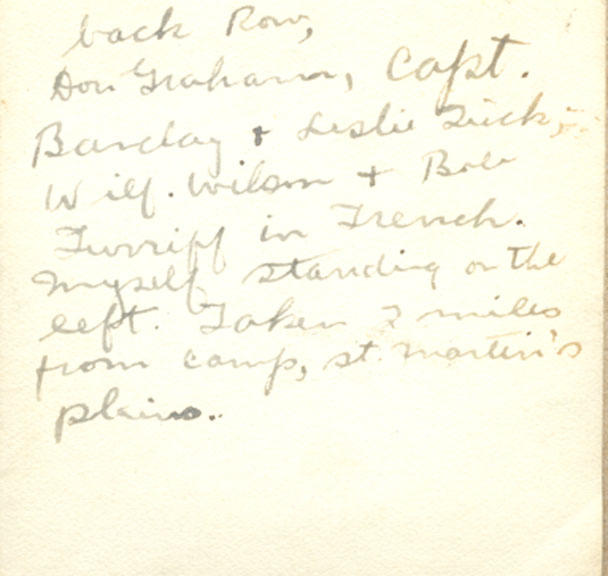 back Row,
Don Graham, Capt.
Barclay + Leslie Tuck,
Wilf. Wilson + Bob
Turriff in Trench.
myself standing on the
left. Taken 2 miles
from camp, st. martin's
plains.